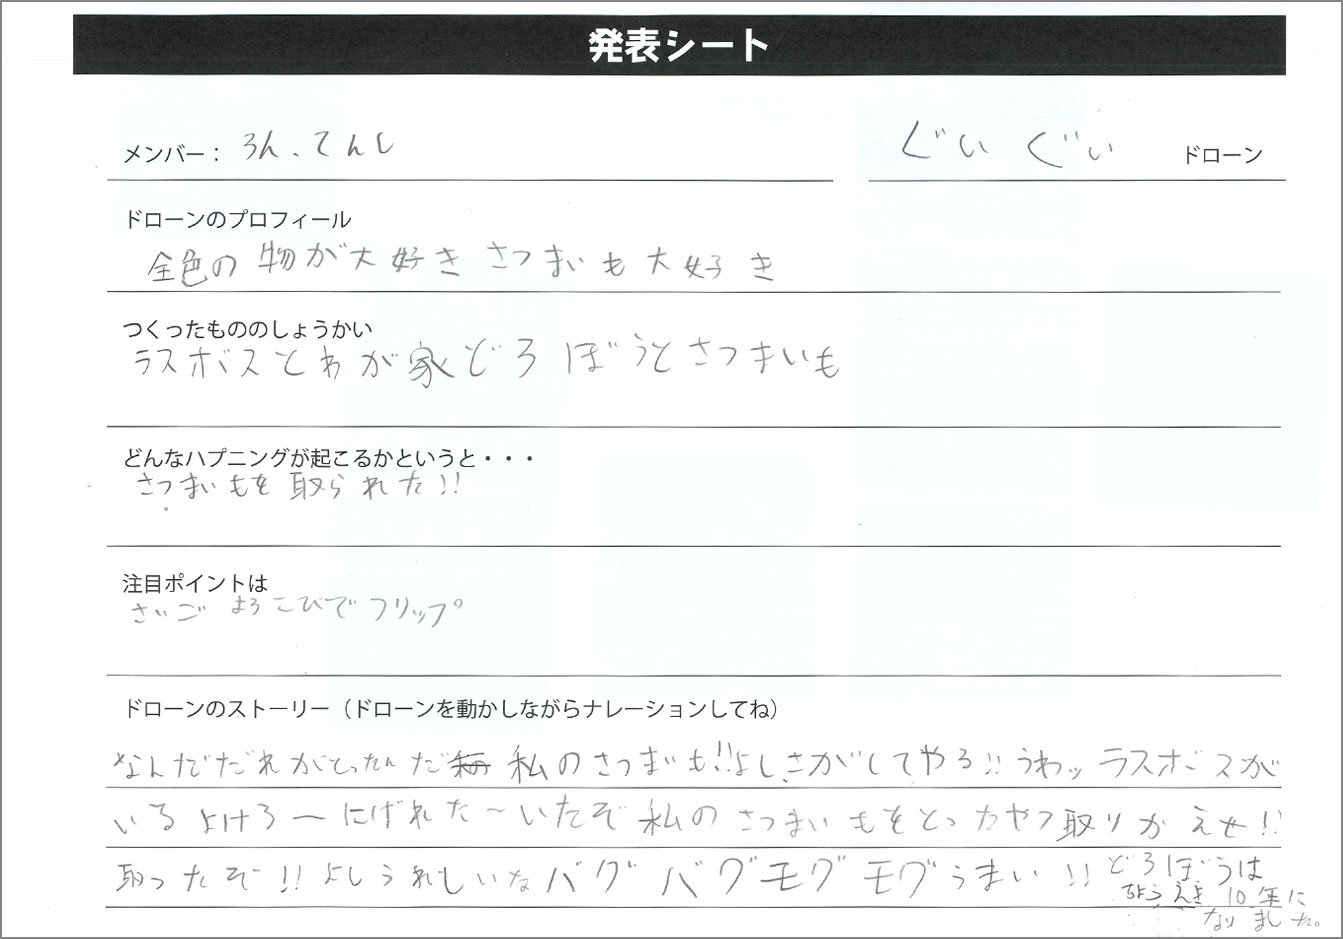 発表シート
メンバー： ろん、てんし
ぐい ぐい ドローン
ドローンのプロフィール
金色の物が大好き さつまいも大好き
つくったもののしょうかい
ラスボスとわが家どろぼうとさつまいも
どんなハプニングが起こるかというと・・・
さつまいもを取られた!!
注目ポイントは
さいご よろこびでフリップ
ドローンのストーリー（ドローンを動かしながらナレーションしてね）
なんだだれがとったんだ 私のさつまいも!!よしさがしてやる!!うわッ ラスボスが
いる よけろ〜にげれた〜いたぞ 私のさつまいもをとったやつ取りかえせ!!
取ったぞ!!よしうれしいなバグバグモグモグうまい!!どろぼうは
ちょうえき10年に
なりました。